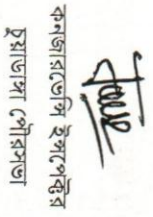 কনজারভেন্সি ইন্সপেক্টর
চুয়াডাঙ্গা পৌরসভা